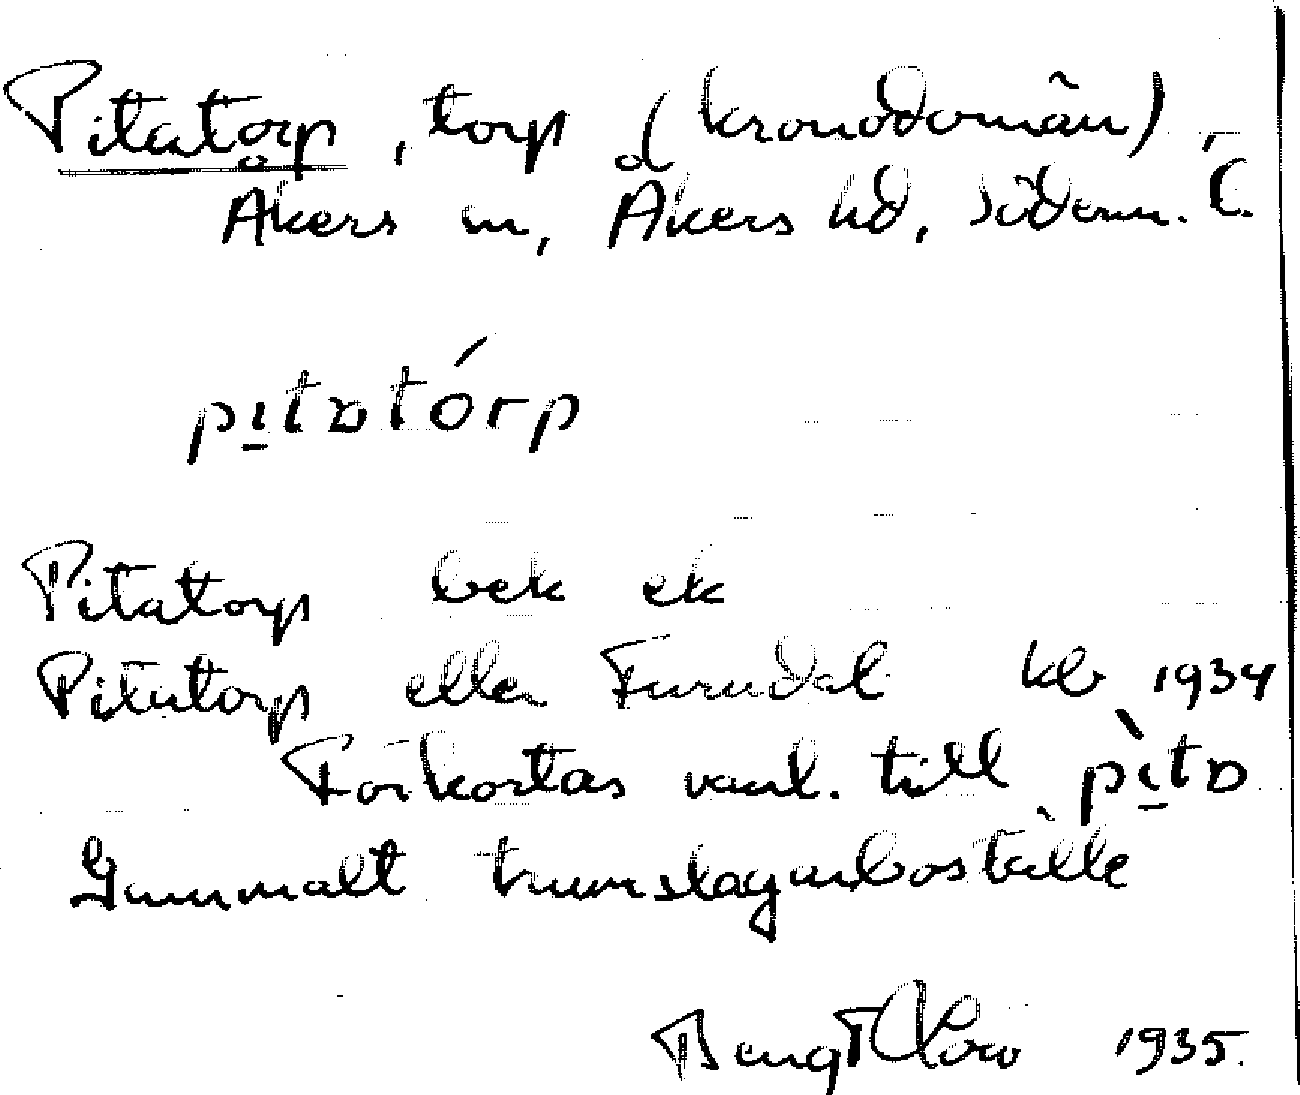 Pitatorp, torp (kronodomän),
Åkers sn, Åkers hd, Söderm. l.
pıtatórp
Pitatorp bek ek
Pitatorp eller Furudal kb 1934
Förkortas vanl. till pìta
Gammalt trumslagarboställe
Bengt 1935.